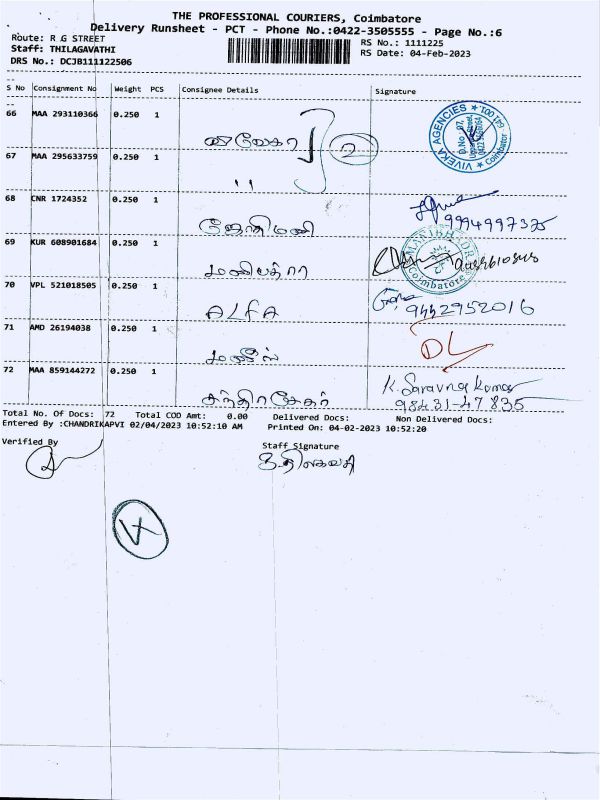 THE PROFESSIONAL COURIERS, Coimbatore
Delivery Runsheet - PCT - Phone No.:0422-3505555 - Page No.:6
Route: R G STREET
RS No.: 1111225
Staff: THILAGAVATHI
RS Date: 04-Feb-2023
DRS No.: DCJB111122506
S No Consignment No Weight PCS Consignee Details Signature
66 MAA 293110366 0.250 1 விவேகா 2 VIVEKA AGENCIES Coimbatore 641 001.
67 MAA 295633759 0.250 1 "
68 CNR 1724352 0.250 1 ஜோதிமணி
69 KUR 608901684 0.250 1 Coimbatore
70 VPL 521018505 0.250 1 ALFA 9442952016
71 AMD 26194038 0.250 1 DL
72 MAA 859144272 0.250 1 சந்திரசேகர் K. Saravna Kumar
98431-47835
Total No. Of Docs: 72 Total COD Amt: 0.00 Delivered Docs: Non Delivered Docs:
Entered By :CHANDRIKAPVI 02/04/2023 10:52:10 AM Printed On: 04-02-2023 10:52:20
Verified By
Staff Signature
த.திலகவதி